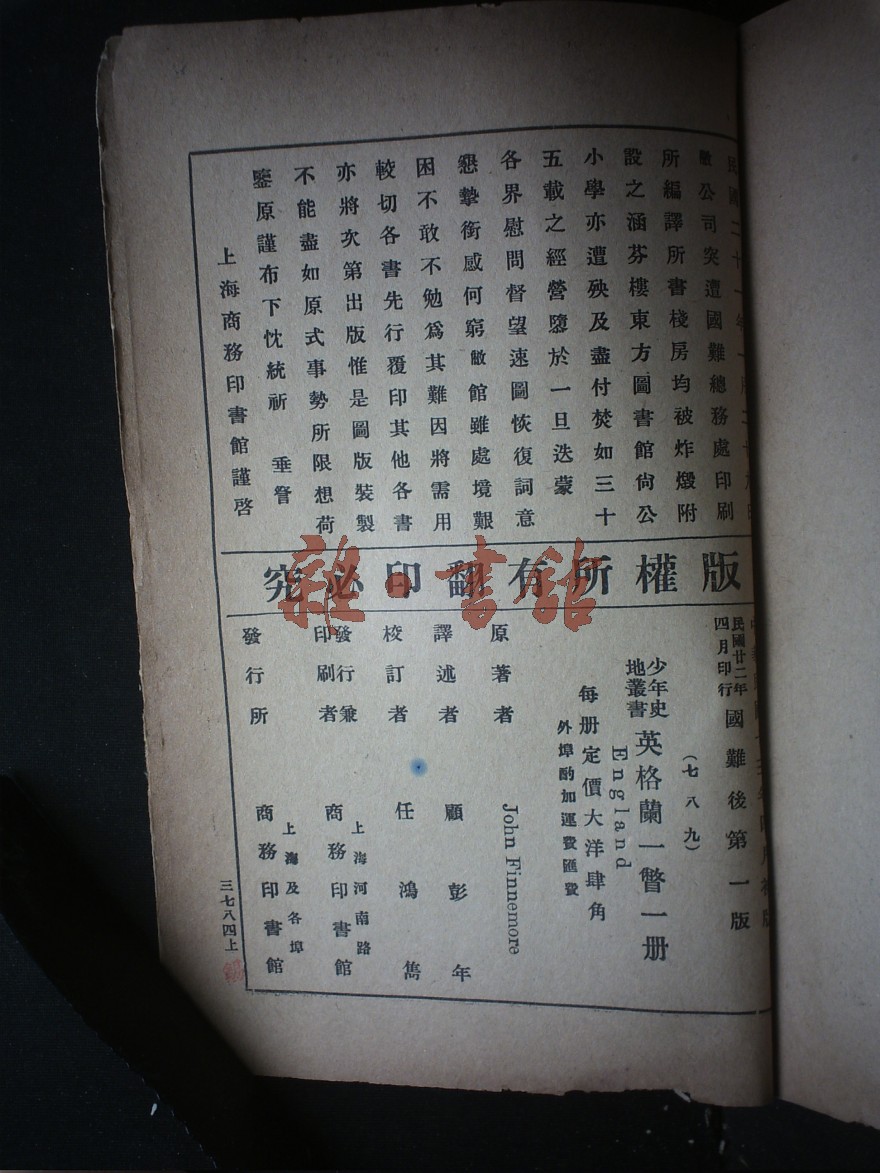 民國二十一年一月二十九日
敝公司突遭國難總務處印刷
所編譯所書棧房均被炸燬附
設之涵芬樓東方圖書館尙公
小學亦遭殃及盡付焚如三十
五載之經營墮於一旦迭蒙
各界慰問督望速圖恢復詞意
懇摯銜感何窮敝館雖處境艱
困不敢不勉爲其難因將需用
較切各書先行覆印其他各書
亦將次第出版惟是圖版裝製
不能盡如原式事勢所限想荷
鑒原謹布下忱統祈 垂詧
上海商務印書館謹啓
版權所有翻印必究
民國廿二年四月印行
國難後第一版
(七八九)
少年史地叢書
英格蘭一瞥一册
England
每册定價大洋肆角
外埠酌加運費匯費
原著者 John Finnemore
譯述者 顧彭年
校訂者 任鴻雋
發行兼印刷者 上海河南路 商務印書館
發行所 上海及各埠 商務印書館
三七八四上
雜·書館